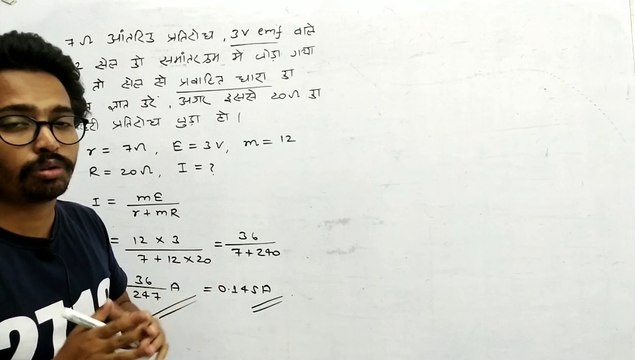 7Ω आंतरिक प्रतिरोध, 3V emf वाले
सेल को समांतरक्रम में जोड़ा गया
तो सेल से प्रवाहित धारा का
ज्ञात करें, अगर इससे 20Ω का
प्रतिरोध जुड़ा हो।
r = 7Ω, E = 3V, m = 12
R = 20Ω, I = ?
I = mE / r + mR
= 12 × 3 / 7 + 12 × 20 = 36 / 7 + 240
36 / 247 A = 0.145A